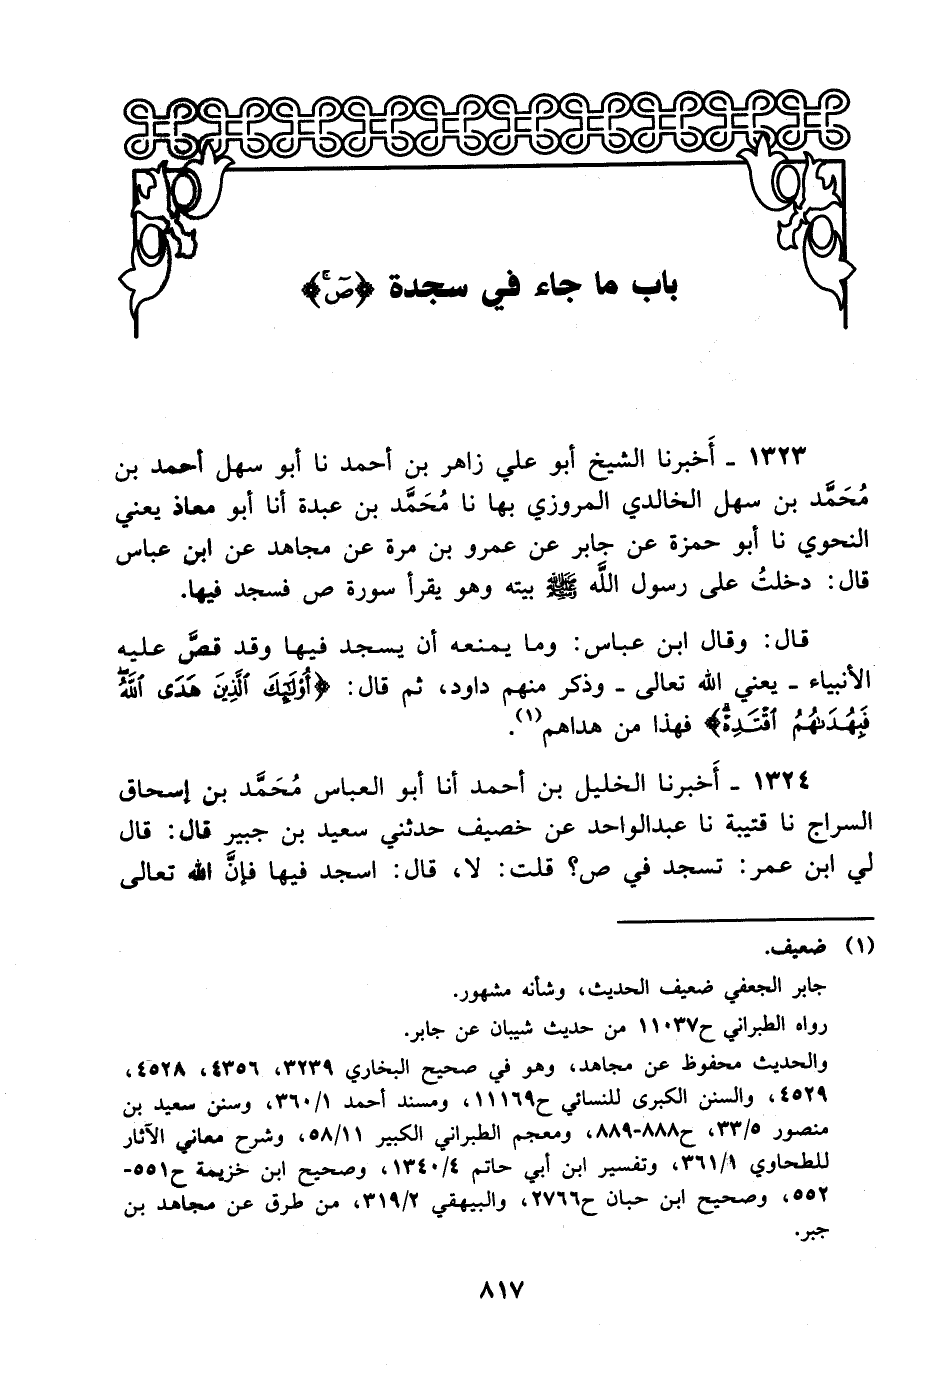 باب ما جاء في سجدة ﴿صٓ﴾
١٣٢٣ ـ أَخبرنا الشيخ أبو علي زاهر بن أحمد نا أبو سهل أحمد بن
مُحَمَّد بن سهل الخالدي المروزي بها نا مُحَمَّد بن عبدة أنا أبو معاذ يعني
النحوي نا أبو حمزة عن جابر عن عمرو بن مرة عن مجاهد عن ابن عباس
قال: دخلتُ على رسول اللَّه ﷺ بيته وهو يقرأ سورة ص فسجد فيها.
قال: وقال ابن عباس: وما يمنعه أن يسجد فيها وقد قصَّ عليه
الأنبياء ـ يعني الله تعالى ـ وذكر منهم داود، ثم قال: ﴿أُوْلَٰٓئِكَ ٱلَّذِينَ هَدَى ٱللَّهُۖ
فَبِهُدَىٰهُمُ ٱقْتَدِهْۗ﴾ فهذا من هداهم(١).
١٣٢٤ ـ أَخبرنا الخليل بن أحمد أنا أبو العباس مُحَمَّد بن إسحاق
السراج نا قتيبة نا عبدالواحد عن خصيف حدثني سعيد بن جبير قال: قال
لي ابن عمر: تسجد في ص؟ قلت: لا، قال: اسجد فيها فإنَّ الله تعالى
(١) ضعيف.
جابر الجعفي ضعيف الحديث، وشأنه مشهور.
رواه الطبراني ح١١٠٣٧ من حديث شيبان عن جابر.
والحديث محفوظ عن مجاهد، وهو في صحيح البخاري ٣٢٣٩، ٤٣٥٦، ٤٥٢٨،
٤٥٢٩، والسنن الكبرى للنسائي ح١١١٦٩، ومسند أحمد ٣٦٠/١، وسنن سعيد بن
منصور ٣٣/٥، ح٨٨٨-٨٨٩، ومعجم الطبراني الكبير ٥٨/١١، وشرح معاني الآثار
للطحاوي ٣٦١/١، وتفسير ابن أبي حاتم ١٣٤٠/٤، وصحيح ابن خزيمة ح٥٥١-
٥٥٢، وصحيح ابن حبان ح٢٧٦٦، والبيهقي ٣١٩/٢، من طرق عن مجاهد بن
جبر.
٨١٧